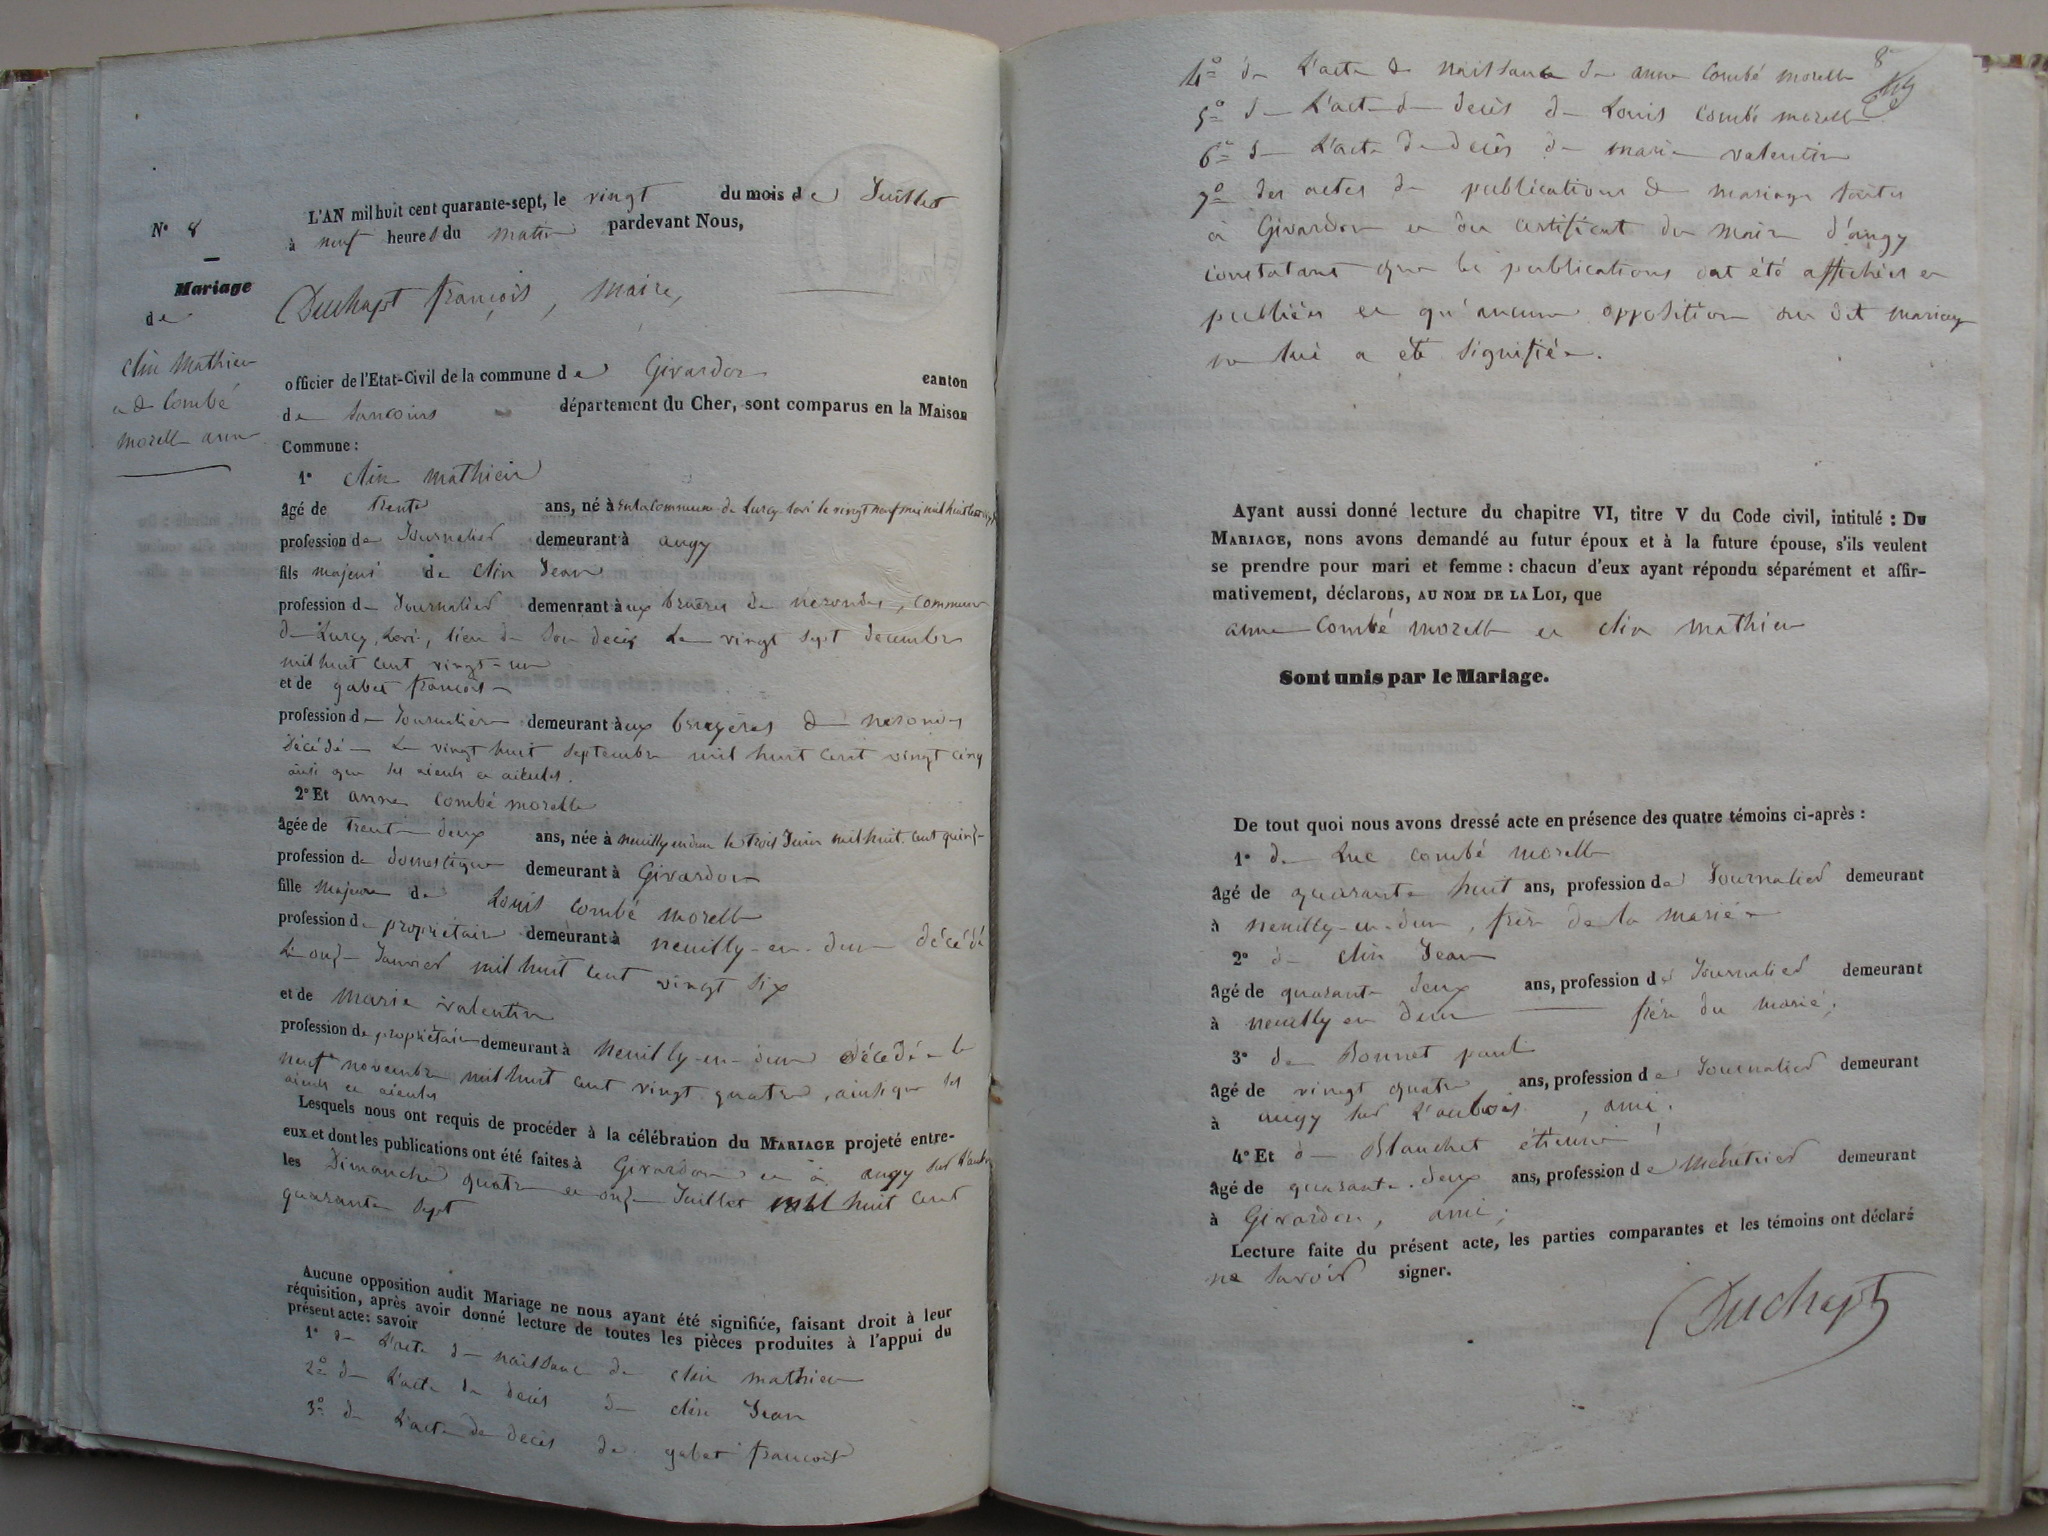 N° 8
Mariage
de
Clin Mathieu
et de Combé
morelle anne
L'AN mil huit cent quarante-sept, le vingt du mois de Juillet
à neuf heures du matin pardevant Nous,
Duchapt françois, maire,
officier de l'Etat-Civil de la commune de Givardon canton
de Sancoins département du Cher, sont comparus en la Maison
Commune :
1° Clin mathieu
âgé de trente ans, né à en la commune de Lurcy Lévi le vingt neuf mil huit cent
profession de Journalier demeurant à augy
fils majeur de Clin Jean
profession de Journalier demeurant à ux bruères de nerondes, commune
de Lurcy Lévi, lieu de son décès le vingt sept décembre
mil huit cent vingt-un
et de gabet françoise
profession de Journalière demeurant à ux bruyères de
décédée le vingt huit septembre mil huit cent vingt cinq
ainsi que ses aieuls et aieules.
2° Et anne combé morelle
âgée de trente deux ans, née à neuilly en dun le trois Juin mil huit cent quinze
profession de domestique demeurant à Givardon
fille majeure de Louis combé morelle
profession de propriétaire demeurant à neuilly-en-dun décédé
le onze Janvier mil huit cent vingt six
et de marie valentin
profession de propriétaire demeurant à neuilly-en-dun décédée le
neuf novembre mil huit cent vingt quatre, ainsi que ses
aieuls et aieules
Lesquels nous ont requis de procéder à la célébration du MARIAGE projeté entre-
eux et dont les publications ont été faites à Givardon et à augy sur l'aubois
les Dimanche quatre et onze Juillet mil huit cent
quarante sept
Aucune opposition audit Mariage ne nous ayant été signifiée, faisant droit à leur
réquisition, après avoir donné lecture de toutes les pièces produites à l'appui du
présent acte : savoir
1° de L'acte de naissance de clin mathieu
2° de L'acte de décès de clin Jean
3° de L'acte de décès de gabet françoise
8
4° de L'acte de naissance de anne combé morelle
5° de L'acte de décès de Louis combé morelle
6° de L'acte de décès de marie valentin
7° des actes de publications de mariage faites
à Givardon et du certificat du maire d'augy
constatant que les publications ont été affichées et
publiées et qu'aucune opposition au dit mariage
ne lui a été signifiée.
Ayant aussi donné lecture du chapitre VI, titre V du Code civil, intitulé : DU
MARIAGE, nons avons demandé au futur époux et à la future épouse, s'ils veulent
se prendre pour mari et femme : chacun d'eux ayant répondu séparément et affir-
mativement, déclarons, AU NOM DE LA LOI, que
anne combé morelle et clin mathieu
Sont unis par le Mariage.
De tout quoi nous avons dressé acte en présence des quatre témoins ci-après :
1° de Luc combé morelle
âgé de quarante huit ans, profession de Journalier demeurant
à neuilly-en-dun, frère de la mariée
2° de Clin Jean
âgé de quarante deux ans, profession de Journalier demeurant
à neuilly en dun frère du marié,
3° de Bonnet paul
âgé de vingt quatre ans, profession de Journalier demeurant
à augy sur L'aubois, ami.
4° Et de Blanchet étienne
âgé de quarante deux ans, profession de Ménétrier demeurant
à Givardon, ami,
Lecture faite du présent acte, les parties comparantes et les témoins ont déclaré
ne savoir signer.
Duchapt